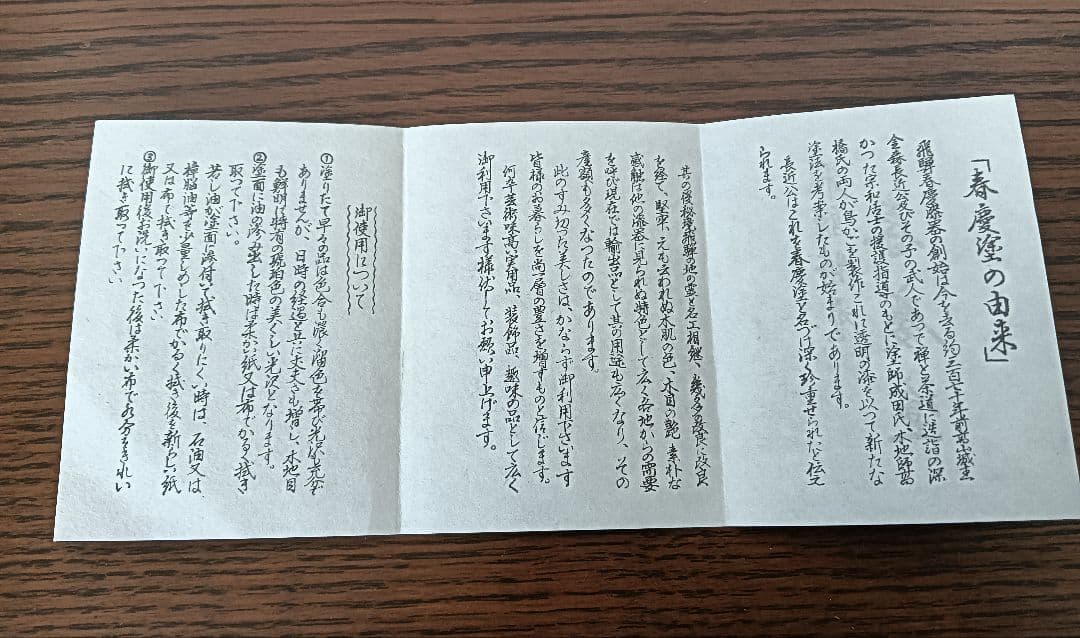 「春慶塗の由来」
飛騨春慶漆器の創始は今を去る約三百七十年前高山城主
金森長近公及びその子の武人であって禅と茶道に造詣の深
かつた宗和居士の援護指導のもとに塗師成田氏、木地師高
橋氏の両人が鳥かごを製作これに透明の漆を以って新たな
塗法を考案したものが始まりであります。
長近公はこれを春慶塗と名づけ深く珍重せられたと伝え
られます。
其の後秘境飛騨の地の霊と名工相継ぎ、幾多の改良に改良
を経て、堅牢、えも云われぬ木肌の色、木目の艶、素朴な
感触は他の漆器に見られぬ特色として広く各地からの需要
を呼び現在では輸出品として其の用途も広くなり、その
産額も多くなったのであります。
此のすみ切った美しさは、かならず御利用下さいます
皆様のお暮らしを尚一層の豊さを増すものと信じます。
何卒芸術味高い実用品、装飾品、趣味の品として広く
御利用下さいます様伏してお願い申上げます。
御使用について
①塗りたて早々の品は色合も濃く溜色を帯び光沢も充分で
ありませんが、日時の経過と共に丈夫さも増し、木地目
も鮮明に特有の琥珀色の美くしい光沢となります。
②塗面に油の滲み出した時は柔かい紙又は布でかるく拭き
取って下さい。
若し油が塗面に滲付いて拭き取りにくい時は、石油又は
樟脳油等を少量しめした布でかるく拭き後を新らしい紙
又は布で拭き取って下さい
③御使用後お洗いになった後は柔かい布で水分をきれい
に拭き取って下さい。